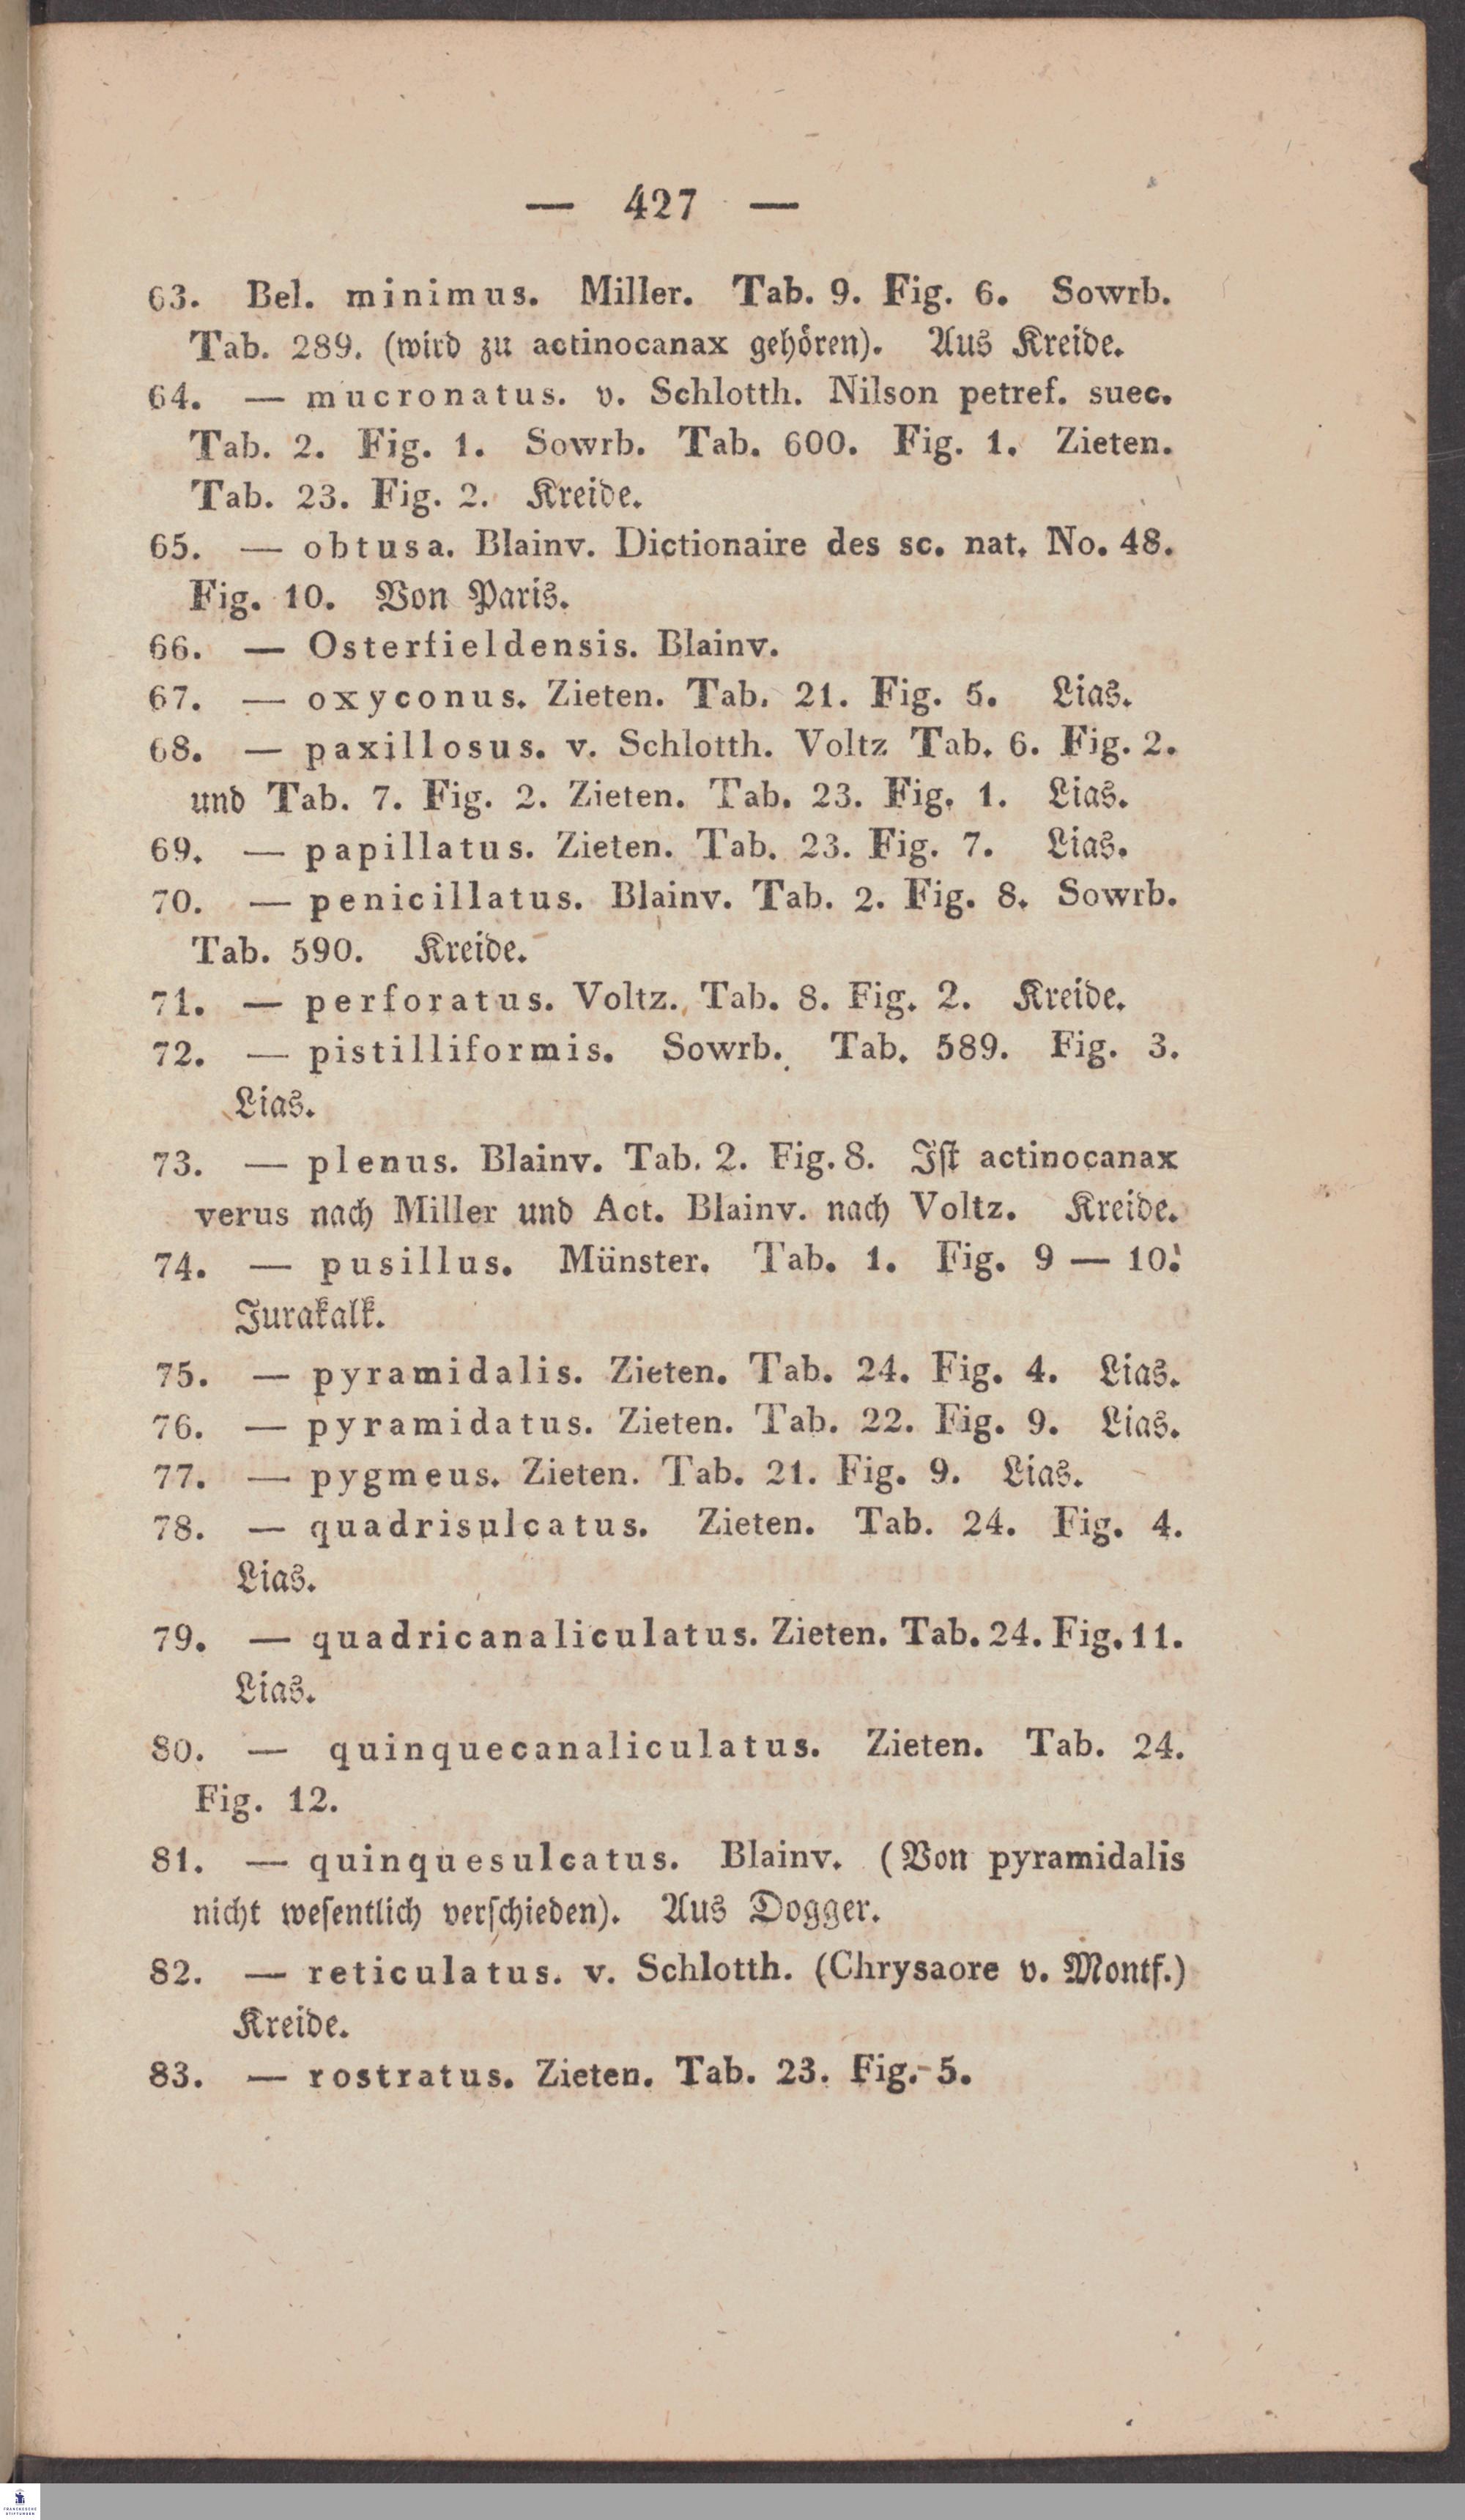 — 427 —
63. Bel. minimus. Miller. Tab. 9. Fig. 6. Sowrb.
Tab. 289. (wird zu actinocanax gehören). Aus Kreide.
64. — mucronatus. v. Schlotth. Nilson petref. suec.
Tab. 2. Fig. 1. Sowrb. Tab. 600. Fig. 1. Zieten.
Tab. 23. Fig. 2. Kreide.
65. — obtusa. Blainv. Dictionaire des sc. nat. No. 48.
Fig. 10. Von Paris.
66. — Osterfieldensis. Blainv.
67. — oxyconus. Zieten. Tab. 21. Fig. 5. Lias.
68. — paxillosus. v. Schlotth. Voltz Tab. 6. Fig. 2.
und Tab. 7. Fig. 2. Zieten. Tab. 23. Fig. 1. Lias.
69. — papillatus. Zieten. Tab. 23. Fig. 7. Lias.
70. — penicillatus. Blainv. Tab. 2. Fig. 8. Sowrb.
Tab. 590. Kreide.
71. — perforatus. Voltz. Tab. 8. Fig. 2. Kreide.
72. — pistilliformis. Sowrb. Tab. 589. Fig. 3.
Lias.
73. — plenus. Blainv. Tab. 2. Fig. 8. Iſt actinocanax
verus nach Miller und Act. Blainv. nach Voltz. Kreide.
74. — pusillus. Münster. Tab. 1. Fig. 9 — 10.
Jurakalk.
75. — pyramidalis. Zieten. Tab. 24. Fig. 4. Lias.
76. — pyramidatus. Zieten. Tab. 22. Fig. 9. Lias.
77. — pygmeus. Zieten. Tab. 21. Fig. 9. Lias.
78. — quadrisulcatus. Zieten. Tab. 24. Fig. 4.
Lias.
79. — quadricanaliculatus. Zieten. Tab. 24. Fig. 11.
Lias.
80. — quinquecanaliculatus. Zieten. Tab. 24.
Fig. 12.
81. — quinquesulcatus. Blainv. (Von pyramidalis
nicht weſentlich verſchieden). Aus Dogger.
82. — reticulatus. v. Schlotth. (Chrysaore v. Montf.)
Kreide.
83. — rostratus. Zieten. Tab. 23. Fig. 5.